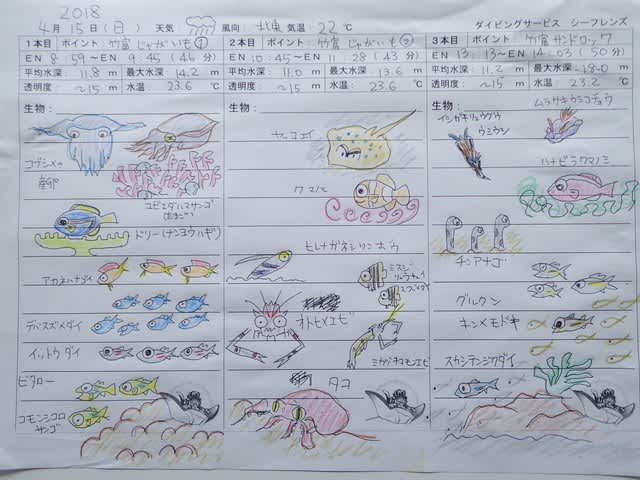 2018
4月15日(日) 天気 風向 北東 気温:22℃ ダイビングサービス シーフレンズ
1本目 ポイント:竹富 じゃがいも①
EN 8:59～EN 9:45 (46分)
平均水深: 11.8 m 最大水深 14.2 m
透明度: ~15 m 水温: 23.6 ℃
生物:
コブシメの
産卵
コビエダハマサンゴ
ドリー(ナンヨウハギ)
アカネハナダイ
デバスズメダイ
イットウダイ
ビタロー
コモンシコロ
サンゴ
2本目 ポイント:竹富 じゃがいも②
EN 10:45～EN 11:28 (43分)
平均水深: 11.0 m 最大水深 13.6 m
透明度: ~15 m 水温: 23.6 ℃
生物:
ヤッコエイ
クマノミ
ヒレナガネジリンボウ
ミスジ
リュウキュウ
スズメダイ
オトヒメエビ
ミカヅキコモンエビ
タコ
3本目 ポイント:竹富 サンドロック
EN 13:13～EN 14:03 (50分)
平均水深: 11.2 m 最大水深 18.0 m
透明度: ~15 m 水温: 23.2 ℃
生物:
ムラサキウミコチョウ
イシガキリュウグウ
ウミウシ
ハナビラクマノミ
チンアナゴ
グルクン
キンメモドキ
スカシテンジクダイ